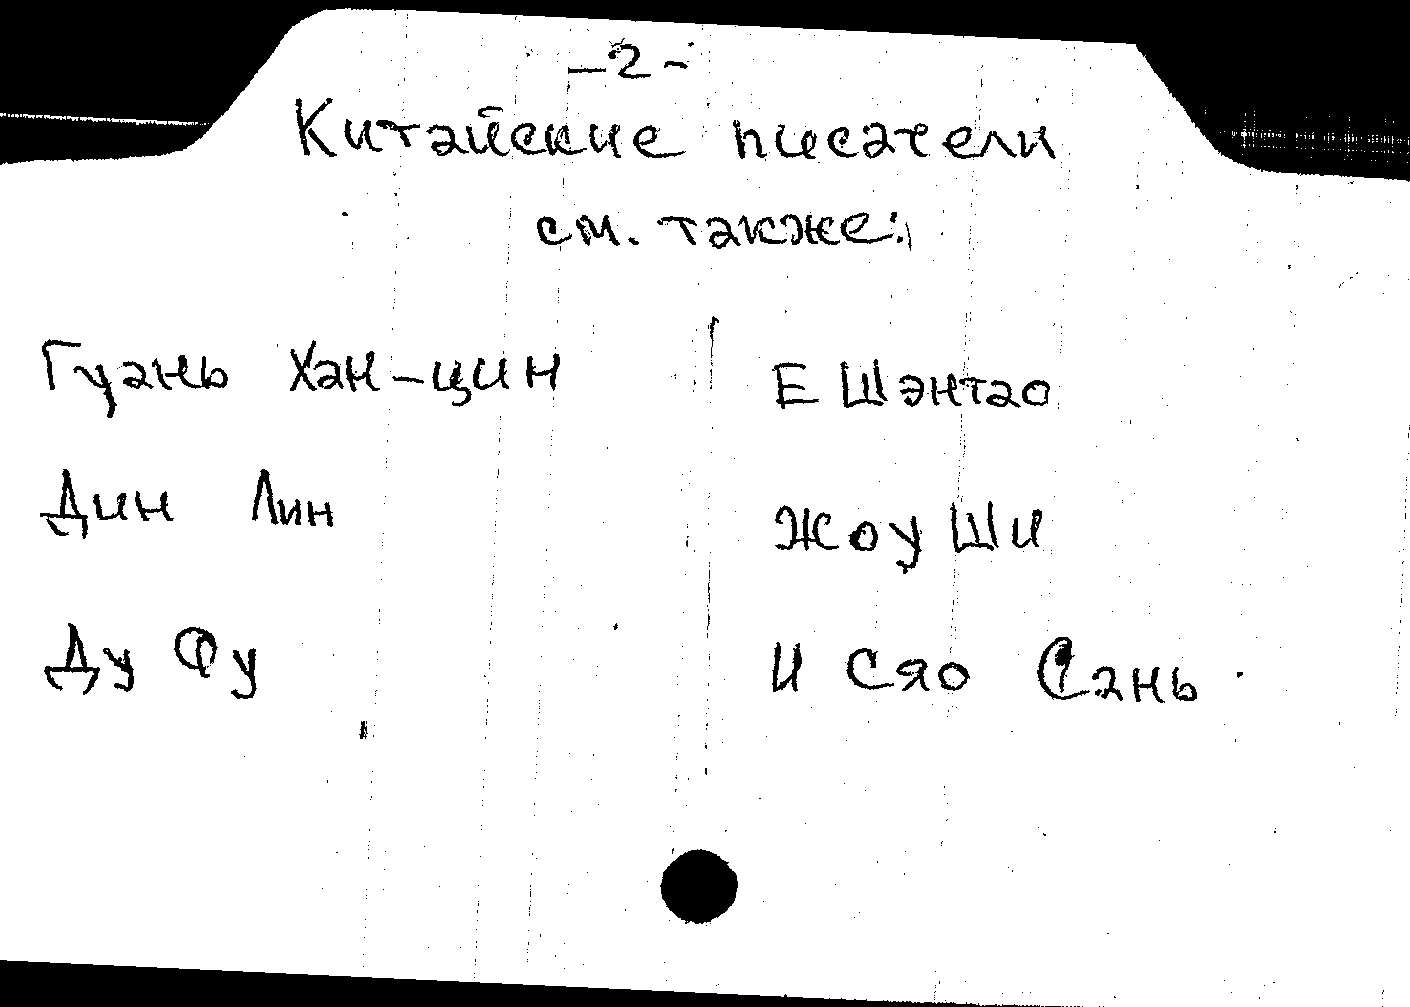 -2-
Китайские писатели
см. также:
Гуань Хан-цин
Дин Лин
Ду Фу
Е Шэнтао
Жоу Ши
И Сяо Сань